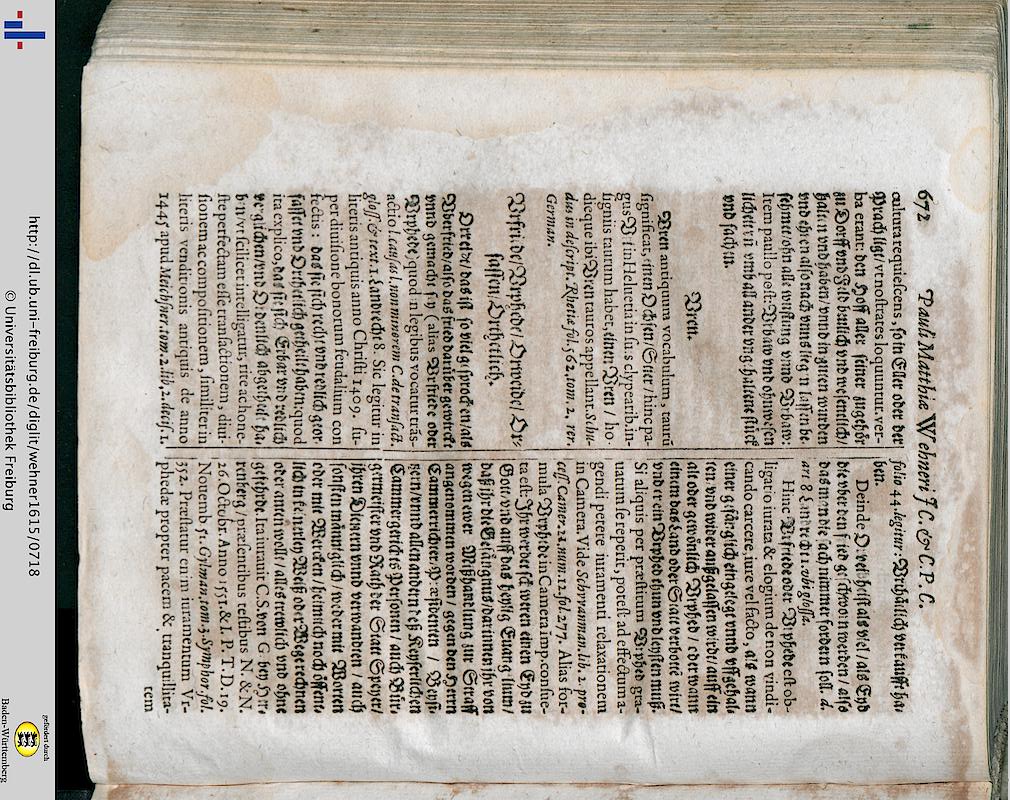 672 Pauli Matthiæ Wehneri JC. & C. P. C.
cultura requiescens, so in Esser oder der
Sprach ligt/ vt nostrates loquuntur. ver-
ba erant: den Hoff aller seiner zugehör
zu Dorff vnd Feld baulich vnd wesentlich/
halten vnd haben/ vnnd in guten wurden
vnd ehren also nach vnns ligen lassen be-
sehnet/ohn alle wüstung vnnd Vrbaw.
Item paulo post: Vrbaw vnd ohnwesen
licheit vñ vmb all ander vng-haltene stück
vnd sachen.
Vren.
Vren antiquum vocabulum, taurũ
significat, einen Ochsen/Stier/ hinc pa-
gus Vri in Heluetia in suis clypearib. in-
signiis taurum habet, einen Vren / ho-
dieque ibi Vren tauros appellant. Schu-
dus in descript. Rhetiæ fol. 562. tom. 2. rer.
German.
Vrfride/ Vrphede/ Vrweid/ Vr-
sassen/ Vrthetlich.
Vrecht/ das ist so viel gsprochen/als
Vberfried/also das fried darüber gewirckt
vnnd gemacht sey (alias Vrfriede oder
Vrphede, quod in legibus vocatur trãs-
actio l. causas 1. non minorem C. de transact.
gloss. & text. 1. Landrecht 8. Sic legitur in
literis antiquis anno Christi 1409. su-
per diuisione bonorum feudalium con
fectis: das sie sich recht vnd redlich geor-
sasset vnd Orthetlich getheilt haben quod
ita explico, das sie sich Erbar vnd redlich
verglichen/vnd Ordenlich abgetheilt ha-
ben/ vt scilicet intelligatur, rite ac hone-
ste perfectam esse transactionem, diui-
sionem ac compositionem, similiter in
literis venditionis antiquis de anno
1445 apud Meichsner. tom. 2. lib. 2. decis. 1.
folio 44. legitur: Vrthätlich verkaufft ha-
ben.
Deinde Orvehe heist als viel/ als Eyd
die vber den fried geschworen werden / also
das man die sach nimmer fordern soll. d.
art. 8. Landrecht 1. vbi glossa.
Hinc Vrfriede oder Vrphede est ob-
ligatio iurata & elogium de non vindi-
cando carcere, iure vel facto, als wann
einer gefängklich eingelegt vnnd vffgehal-
ten/ vnd wider außgelassen wirdt/ auff ein
alt oder gewönlich Vrphed / oder wann
einem das Land oder Statt verbote wirt/
vnd er ein Vrphed thun vnd leysten muß
Si aliquis per præthium Vrphed gra-
uatum se reperit, potest ad effectum a-
gendi petere iuramenti relaxationem
in Camera. Vide Schvvanman. lib. 2. pro-
cess. Camer. 24. num. 12. fol. 277. Alias for-
mula Vrphede in Camera imp. consue-
ta est: Ihr werdet schweren einen Eyd zu
Gott/ vnd auff das heylig Euangelium/
daß ihr die Gefängnus/darinnen ihr von
wegen ewer Mißhandlung zur Straff
angenommen worden / gegen den Herrn
Cammerrichter/Præsidenten / Beysi-
tzern/vnnd andern deß Keyserlichen
Cammergerichts Personen / auch Bur-
germeister vnd Rath der Statt Speyer/
ihren Dienern vnd verwandten / auch
sonsten männiglich / weder mit Worten
oder mit Wercken / heimlich noch öffent-
lich in keinerley Weiß oder Wege rechnen
oder anten wöllt/ alles trewlich vnd ohne
gefehrde. Ita iurauit C. S. von G. bey Hey-
renberg / præsentibus testibus N. & N.
26. Octobr. Anno 1551. & J. P. T. D. 19.
Nouemb. 51. Gylman. tom. 3. Symphor. fol.
352. Præstatur enim iuramentum Vr-
phedæ propter pacem & tranquillita-
tem
http://dl.ub.uni-freiburg.de/diglit/wehner1615/0718
© Universitätsbibliothek Freiburg
gefördert durch
Baden-Württemberg